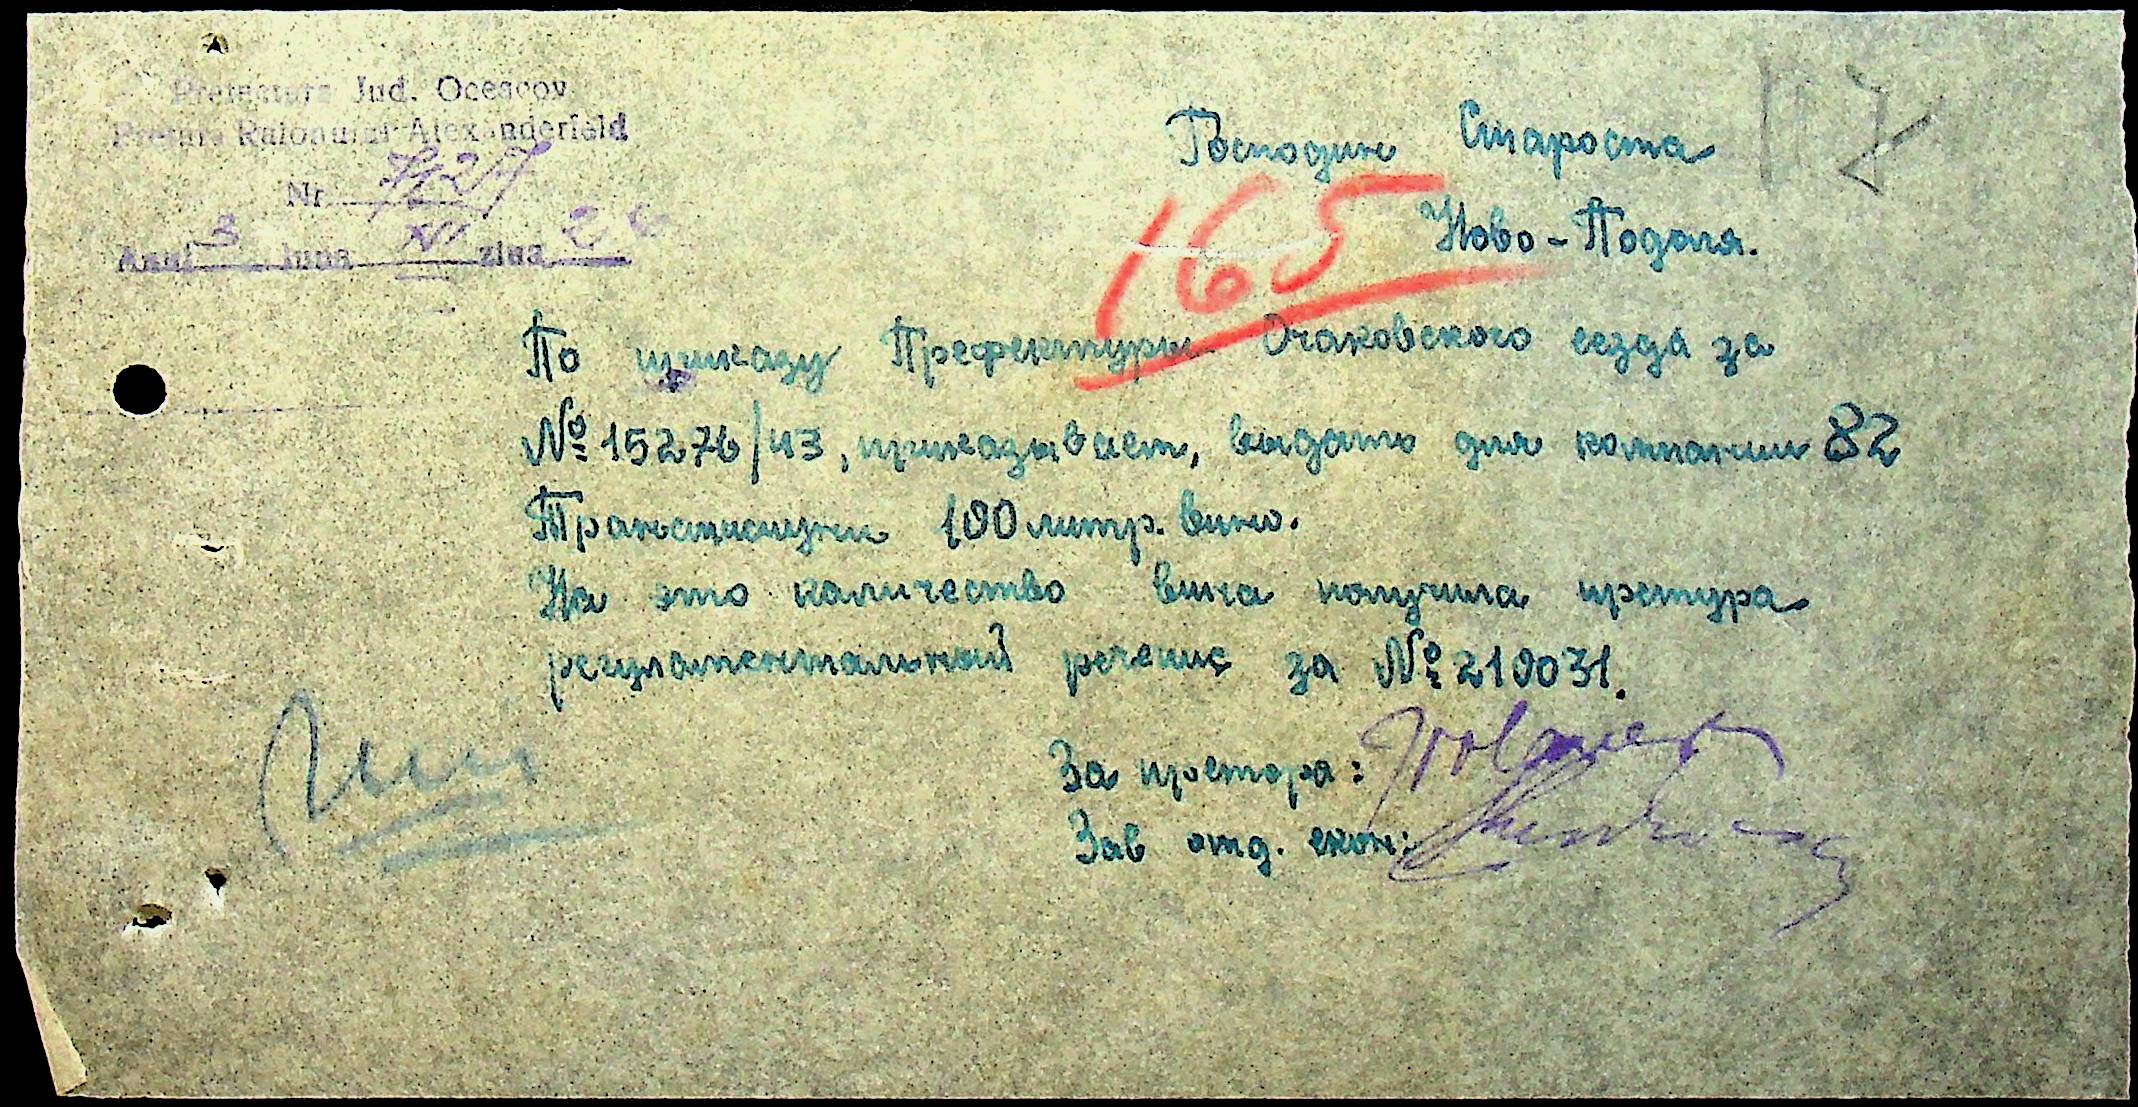 Prefectura Jud. Oceacov
Pretura Raionului Alexanderfeld
Nr. 7427
Anul 3 luna XI ziua 26
Господин Староста
165
Ново-Подоля.
По приказу Префектуры Очаковского уезда за
№ 15276/43, приказывает, выдать для компании 82
Трансмисиуни 100 литр. вино.
На это количество вина получила претура
регуламентальный речепис за № 219031.
За претора:
Зав отд. екон: